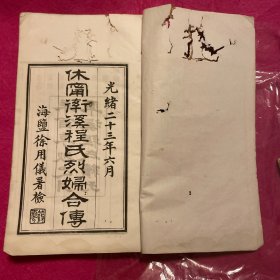 光緒二十三年六月
休甯衛溪程氏烈婦合傳
海鹽徐用儀署檢